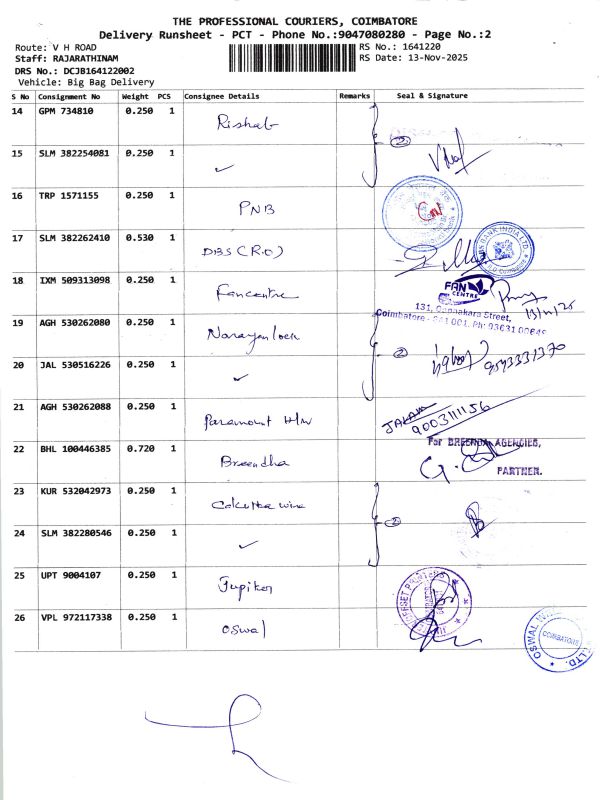 THE PROFESSIONAL COURIERS, COIMBATORE
Delivery Runsheet - PCT - Phone No.:9047080280 - Page No.:2
Route: V H ROAD
RS No.: 1641220
Staff: RAJARATHINAM
RS Date: 13-Nov-2025
DRS No.: DCJB164122002
Vehicle: Big Bag Delivery
S No Consignment No Weight PCS Consignee Details Remarks Seal & Signature
14 GPM 734810 0.250 1 Rishab
②
15 SLM 382254081 0.250 1 ✓
16 TRP 1571155 0.250 1 PNB
17 SLM 382262410 0.530 1 DBS (R.O)
18 IXM 509313098 0.250 1 Fancentre
FAN CENTRE
13/11/25
131, Street,
Coimbatore - 641 001. Ph: 93631 00649
19 AGH 530262080 0.250 1
②
20 JAL 530516226 0.250 1 ✓
21 AGH 530262088 0.250 1 Paramount H/W
9003111156
22 BHL 100446385 0.720 1 Breendha
For BREENDA AGENCIES,
PARTNER.
23 KUR 532042973 0.250 1 Calcutta wine
②
24 SLM 382280546 0.250 1 ✓
25 UPT 9004107 0.250 1 Jupiter
OFFSET PRINTERS
26 VPL 972117338 0.250 1 Oswal
OSWAL
COIMBATORE
LTD.